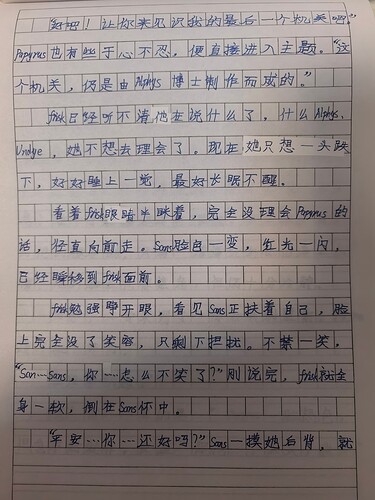 "好吧！让你来见识我的最后一个机关吧"
Papyrus也有些于心不忍，便直接进入主题。"这
个机关，仍是由Alphys 博士制作而成的。"
frisk已经听不清他在说什么了，什么Alphys、
Undyne，她不想去理会了。现在她只想一头跌
下，好好睡上一觉，最好长眠不醒。
看着frisk眼睛半眯着，完全没理会Papyrus的
话，径直向前走。Sans脸色一变，红光一闪，
已经瞬移到frisk面前。
frisk勉强睁开眼，看见Sans正扶着自己，脸
上完全没了笑容，只剩下担忧。不禁一笑。
"San……Sans，你……怎么不笑了？"刚说完，frisk就全
身一软，倒在Sans怀中。
"平安……你……还好吗？"Sans一摸她后背，就